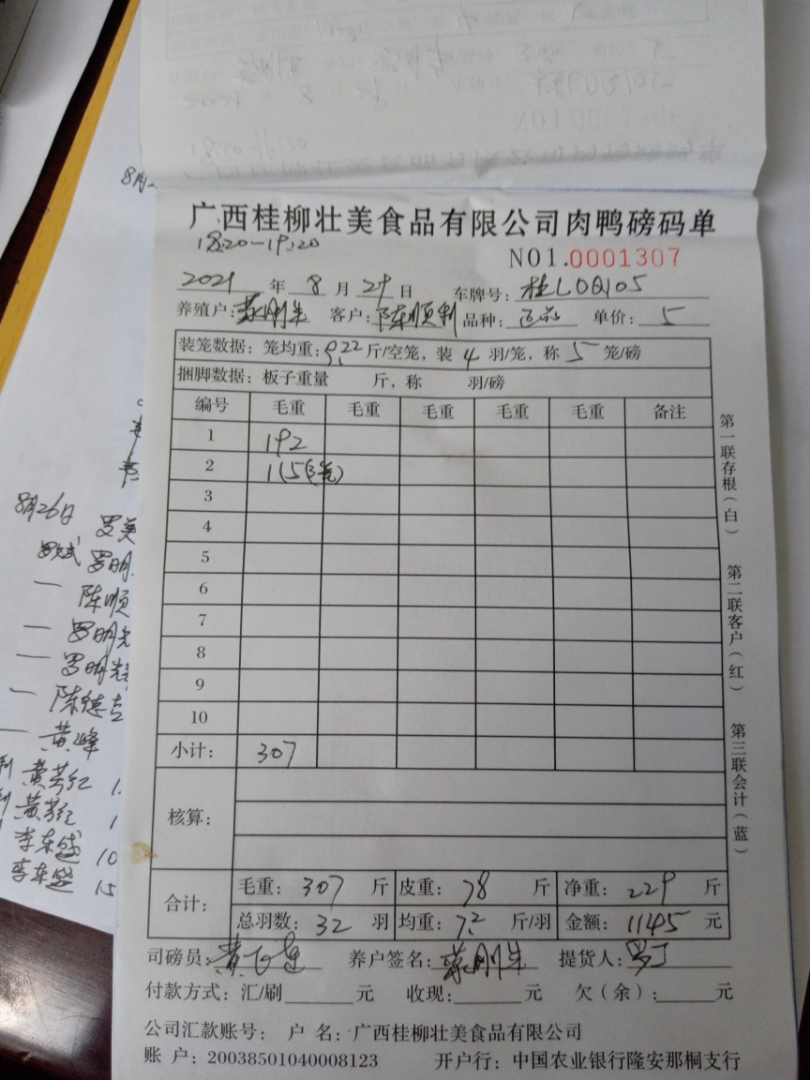 8月
广西桂柳壮美食品有限公司肉鸭磅码单
18:20—19:20
NO1.0001307
2021 年 8 月 29 日 车牌号: 桂L0Q105
养殖户: 客户: 陈顺利 品种: 单价: 5
装笼数据: 笼均重: 9.22 斤/空笼, 装 4 羽/笼, 称 5 笼/磅
捆脚数据: 板子重量 斤, 称 羽/磅
编号 毛重 毛重 毛重 毛重 毛重 备注
1 192
2 115(3笼)
3
4
5
6
7
8
9
10
小计: 307
核算:
合计: 毛重: 307 斤 皮重: 78 斤 净重: 229 斤
总羽数: 32 羽 均重: 7.2 斤/羽 金额: 1145 元
司磅员: 养户签名: 提货人: 罗丁
付款方式: 汇/刷 元 收现: 元 欠(余): 元
公司汇款账号: 户 名: 广西桂柳壮美食品有限公司
账 户: 20038501040008123 开户行: 中国农业银行隆安那桐支行
第一联存根(白)
第二联客户(红)
第三联会计(蓝)
8月26日 罗美
罗斌 罗明
— 陈顺
— 罗明光
— 罗明光
— 陈德
— 黄峰
利 黄芳红 1
利 黄芳红 1
李东盛 10
李东盛 15